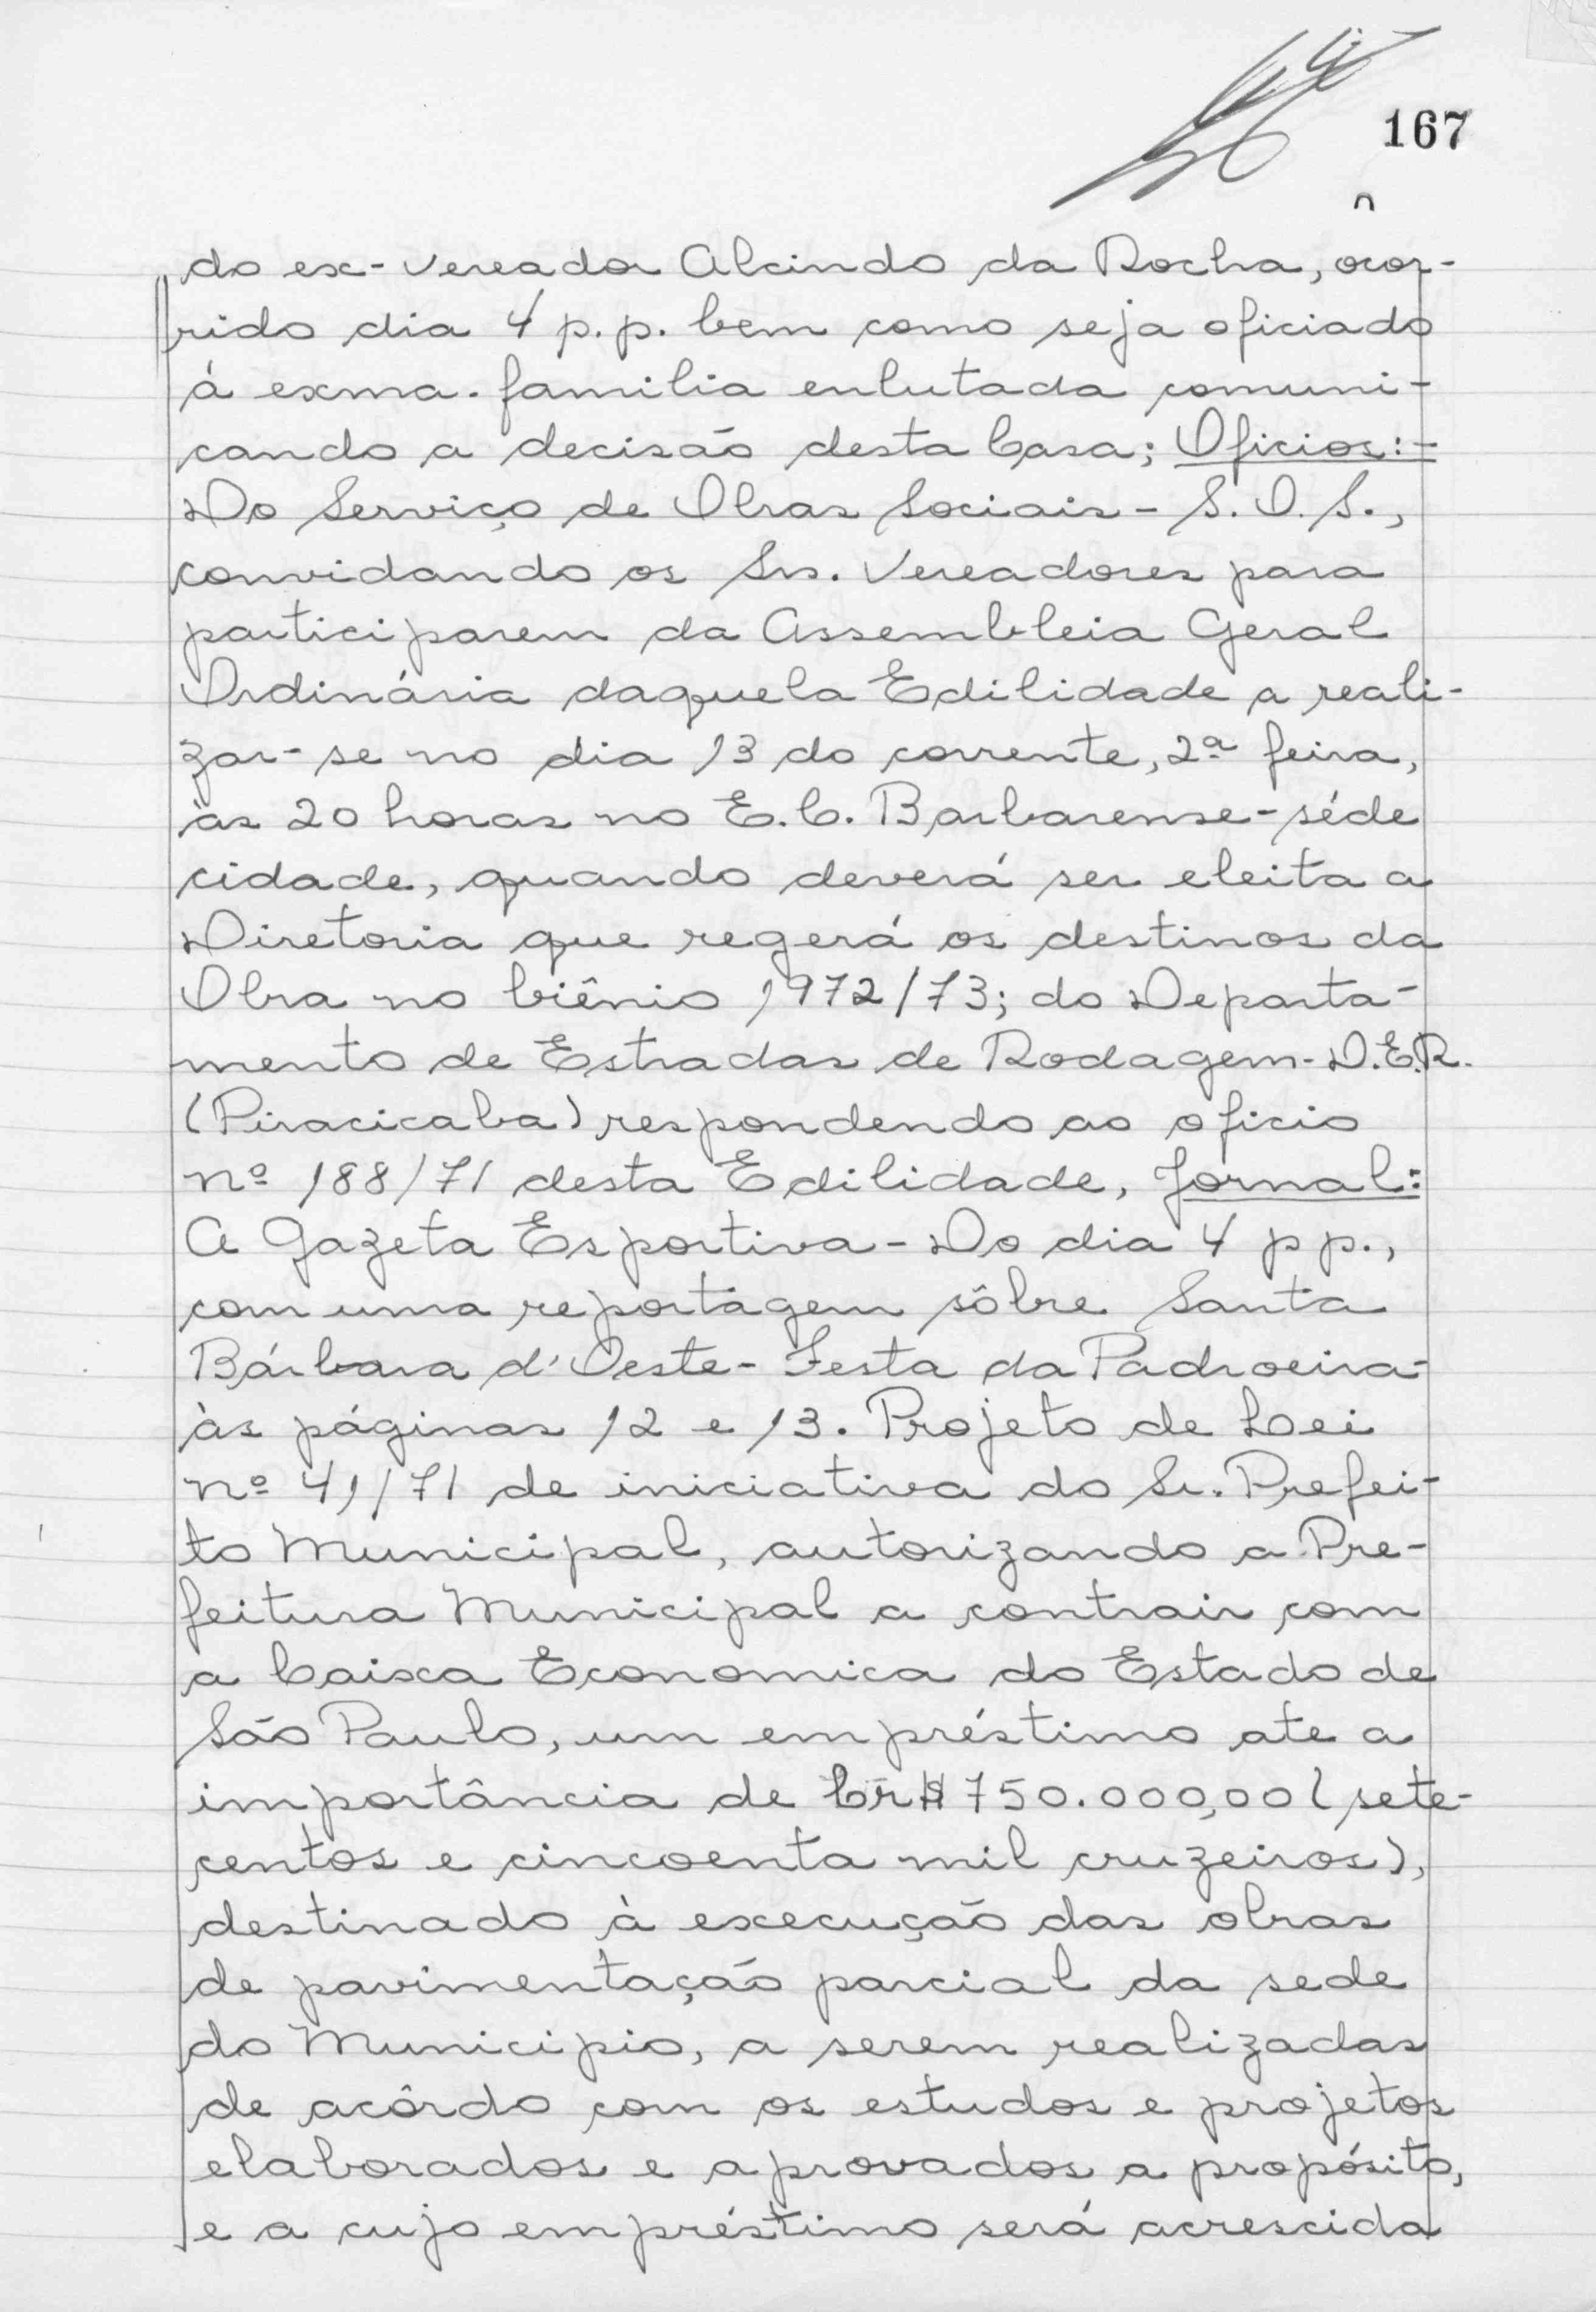 167
do ex-vereador Alcindo da Rocha, ocor-
rido dia 4 p.p. bem como seja oficiado
á exma. familia enlutada comuni-
cando a decisão desta Casa; Oficios:-
Do Serviço de Obras Sociais - S.O.S.,
convidando os Srs. Vereadores para
participarem da Assembleia Geral
Ordinária daquela Edilidade a reali-
zar-se no dia 13 do corrente, 2ª feira,
às 20 horas no E.C. Barbarense-séde
cidade, quando deverá ser eleita a
Diretoria que regerá os destinos da
Obra no biênio 1972/73; do Departa-
mento de Estradas de Rodagem-D.E.R.
(Piracicaba) respondendo ao oficio
nº 188/71 desta Edilidade, Jornal:
A Gazeta Esportiva - Do dia 4 p p.,
com uma reportagem sôbre Santa
Bárbara d'Oeste - Festa da Padroeira-
às páginas 12 e 13. Projeto de Lei
nº 41/71 de iniciativa do Sr. Prefei-
to Municipal, autorizando a Pre-
feitura Municipal a contrair com
a Caixa Economica do Estado de
São Paulo, um empréstimo ate a
importância de Cr$ 750.000,00 (sete-
centos e cincoenta mil cruzeiros),
destinado à execução das obras
de pavimentação parcial da sede
do Municipio, a serem realizadas
de acôrdo com os estudos e projetos
elaborados e aprovados a propósito,
e a cujo empréstimo será acrescida